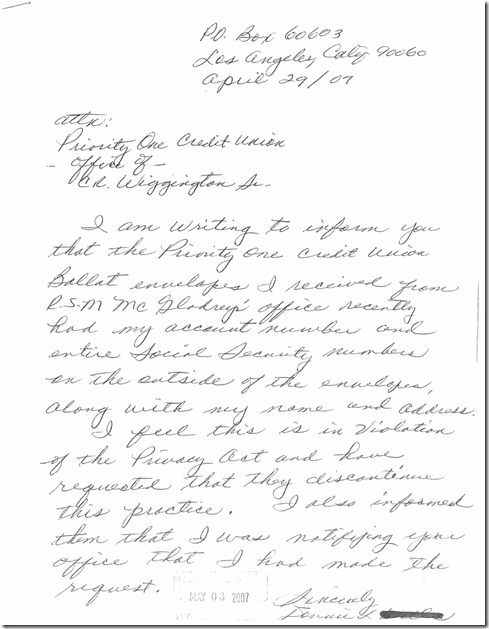 P.O. Box 60603
Los Angeles, Caly 90060
April 29/07
attn:
Priority One Credit Union
- office of -
C.R. Wiggington Sr.
I am writing to inform you
that the Priority One Credit Union
Ballat envelopes I received from
R.S.M Mc Gladrey's office recently
had my account number and
entire Social Security numbers
on the outside of the envelopes,
along with my name and address.
I feel this is in Violation
of the Privacy Act and have
requested that they discontinue
this practice. I also informed
them that I was notifying your
office that I had made the
request.
MAY 03 2007
BY
Sincerely
Lonnie